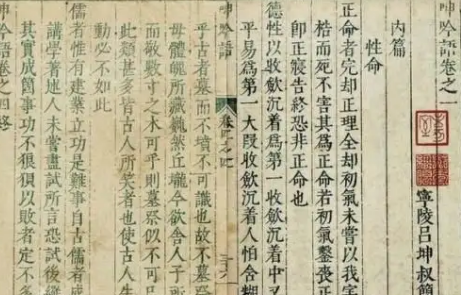 呻吟語卷之一
寧陵呂坤叔簡
內篇
性命
正命者完却正理全却初氣未嘗以我害
桎梏而死不害其爲正命若初氣鑿喪正
卽正寢告終恐非正命也
德性以收斂沉着爲第一收斂沉着中又
平易爲第一大段收斂沉着人怕含糊
呻吟語
卷四之四
乎古者墓而不墳不可識也故不墓祭
母體魄所藏巍巍丘壠今欲舍人子所
而敬數寸之木可乎則墓祭似不可
此類甚多皆古人所笑者也使古人生
動必不如此
儒者惟有建業立功是難事自古儒者成
講學著述人未嘗盡試所言恐試後縱
其實成箇事功不狼狽以敗者定不多
呻吟語卷之四終